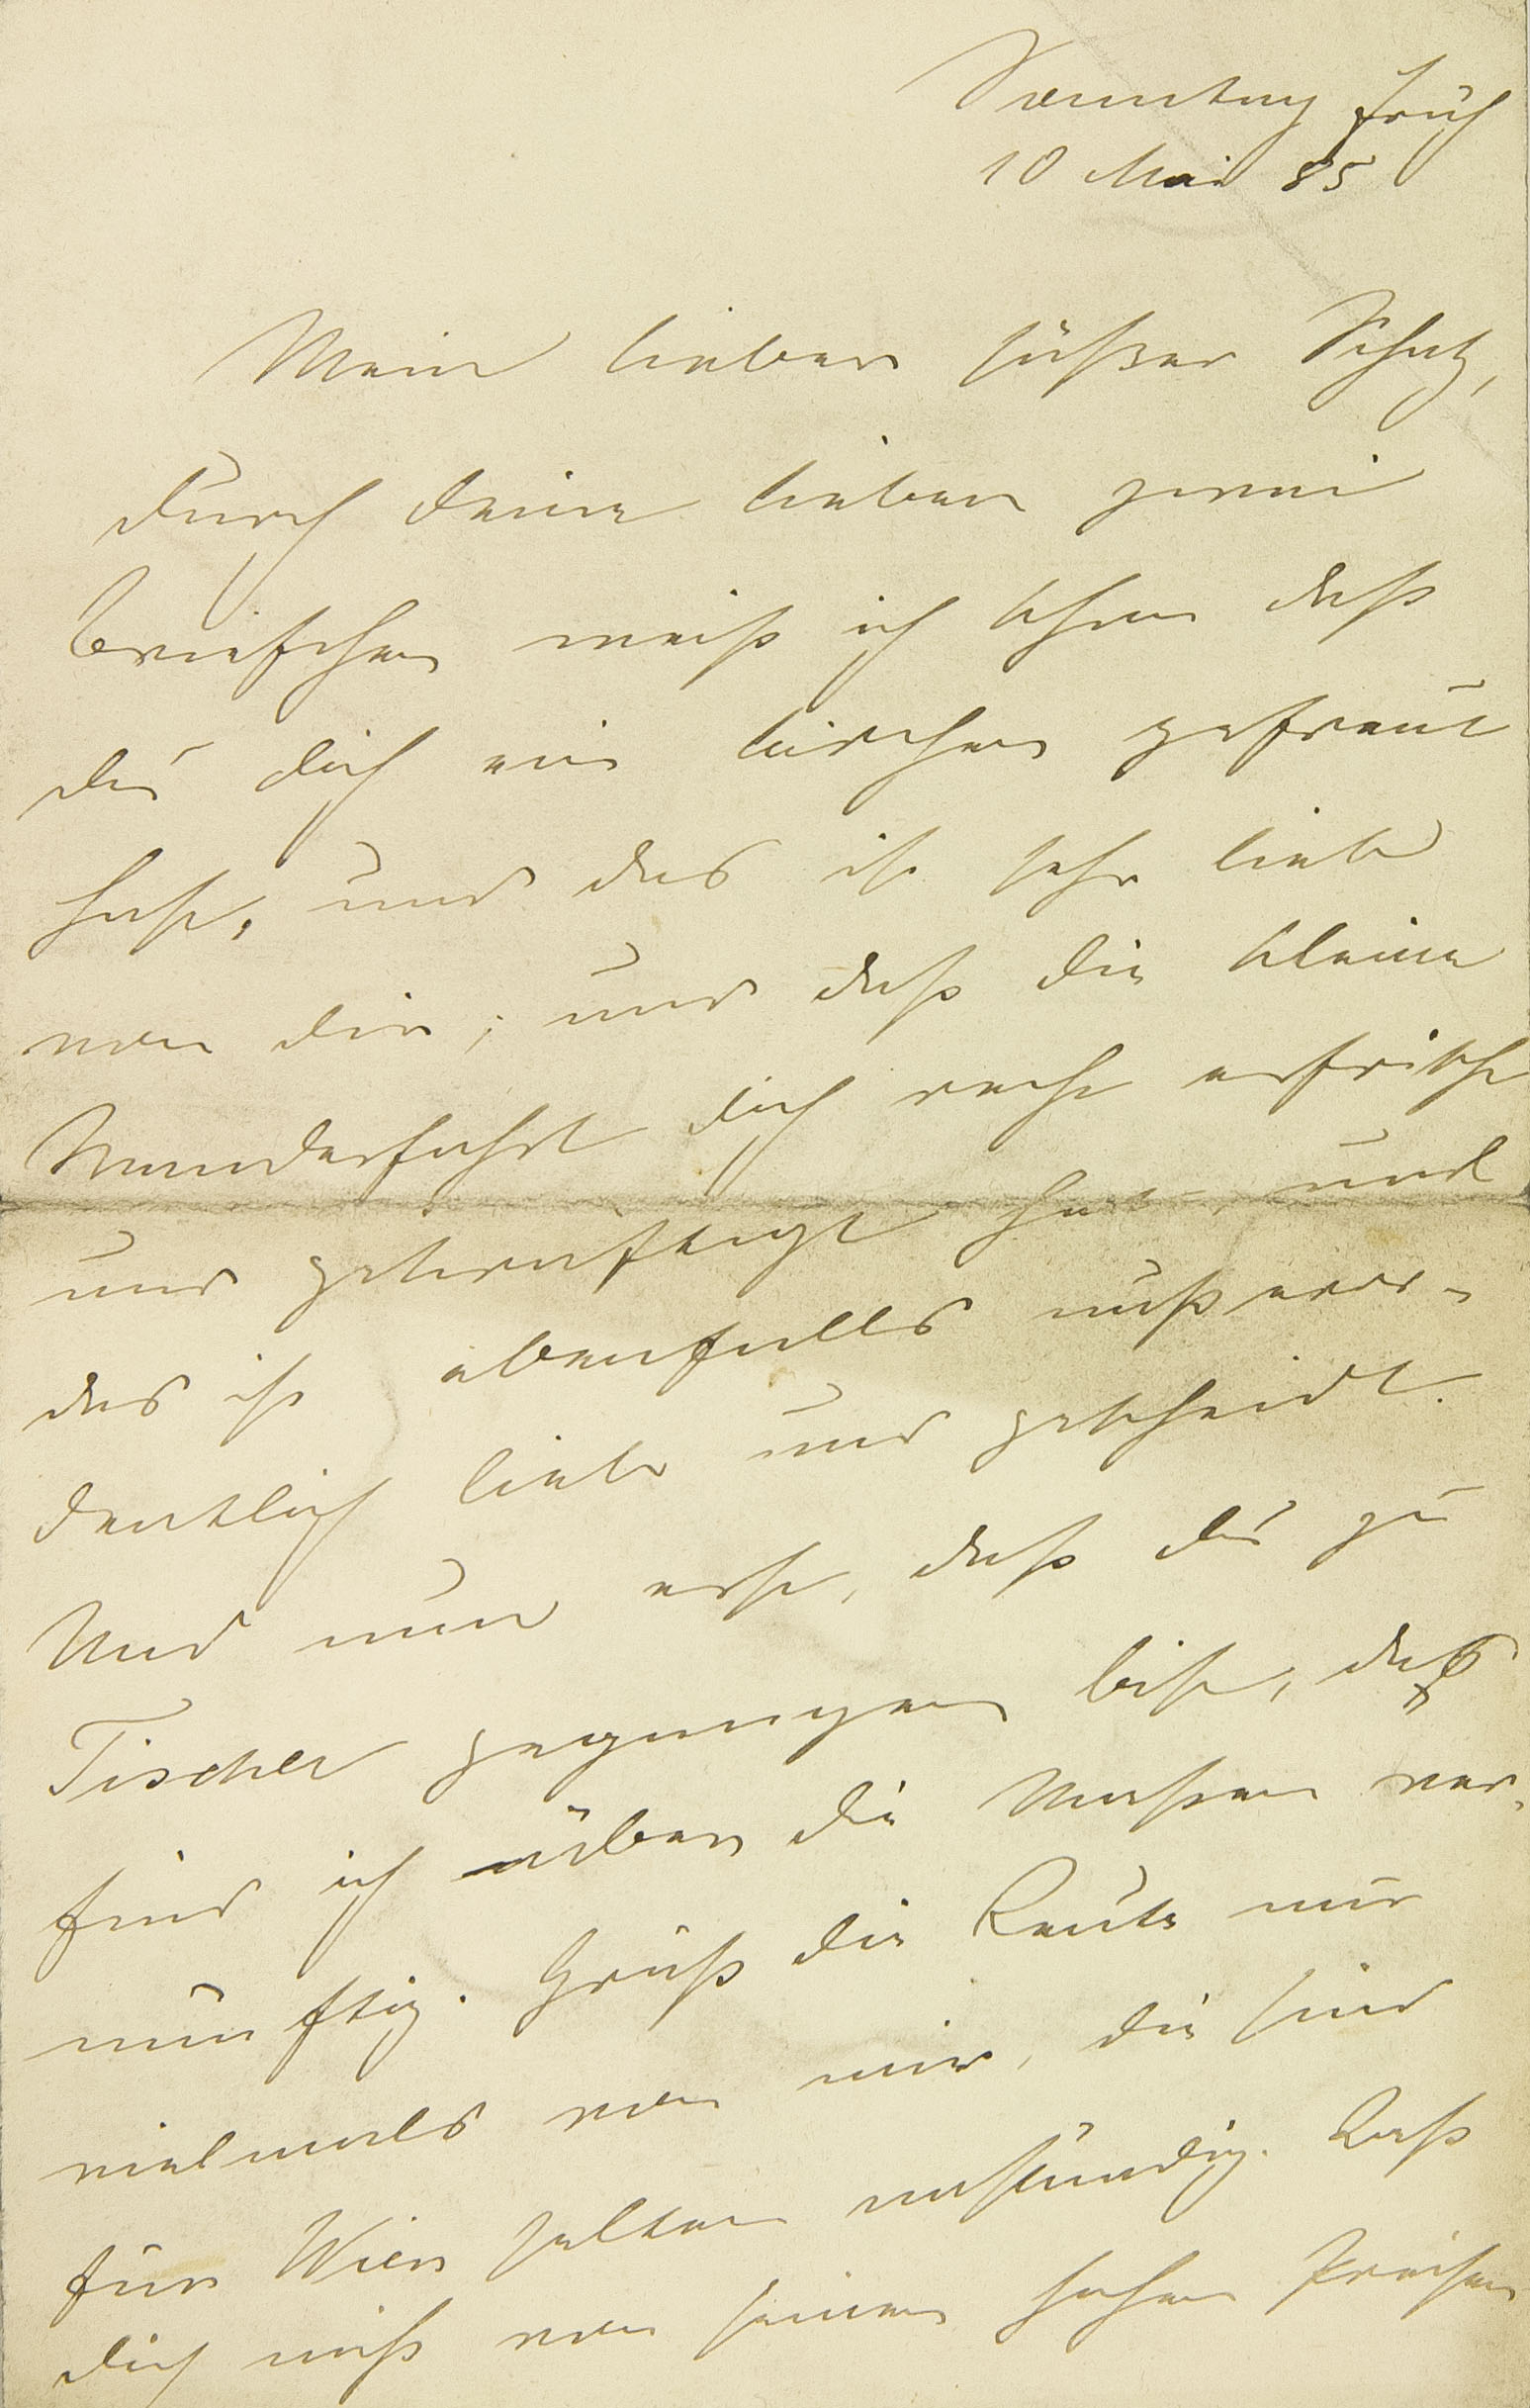 Sonntag früh
10 Mai 85
Mein lieber süßer Schatz,
durch deine lieben zwei
Briefchen weiß ich schon daß
du dich ein bischen gefreut
hast, und das ist sehr lieb
von dir; und daß die kleine
Wunderfahrt dich recht erfrischt
und gekräftigt hat, und
das ist ebenfalls außeror-
dentlich lieb und gescheidt.
Und nun erst, daß du zu
Tischler gegangen bist, das
find ich über die Maßen ver-
nünftig. Grüß die Leute nur
vielmals von mir, die sind
für Wien selten anständig. Laß
dich nicht von seinen hohen Preisen